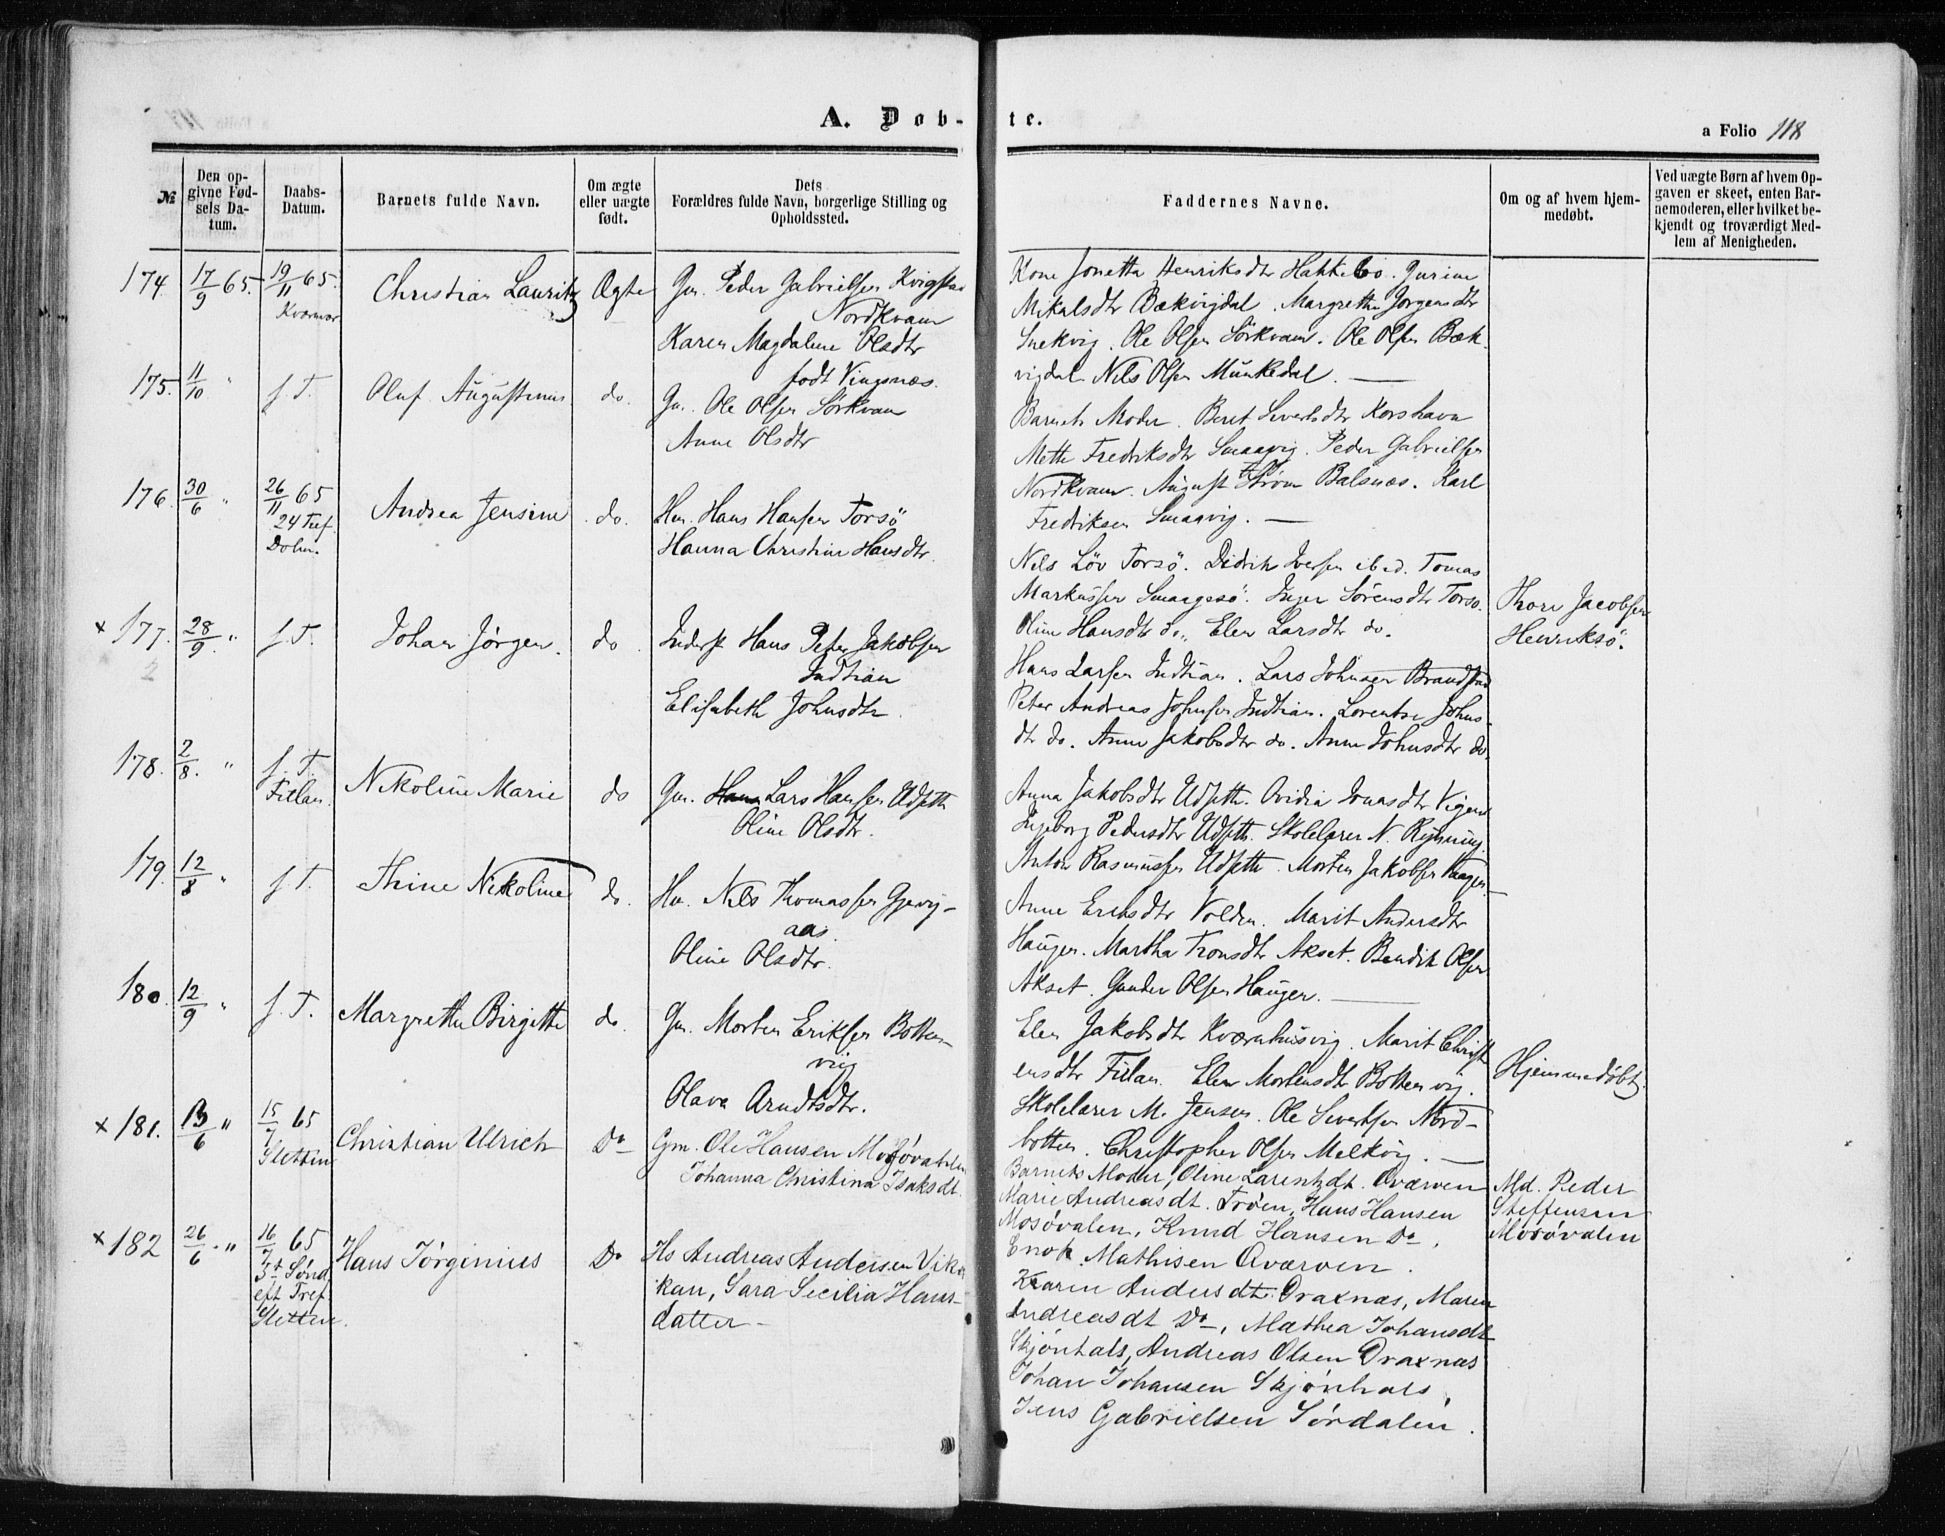 A. Døb-te.
a Folio 118
№
Den op-
givne Fød-
sels Da-
tum.
Daabs-
Datum.
Barnets fulde Navn.
Om ægte
eller uægte
født.
Dets
Forældres fulde Navn, borgerlige Stilling og
Opholdssted.
Faddernes Navne.
Om og af hvem hjem-
medøbt.
Ved uægte Børn af hvem Op-
gaven er skeet, enten Bar-
nemoderen, eller hvilket be-
kjendt og troværdigt Med-
lem af Menigheden.
174. 17/9 65. 19/11 65. Christian Lauritz Ægte Gm. Peder Gabrielsen Kvigstad
Nordkvam
Karen Magdalene Olsdtr
født Vingsnæs.
Kone Jonetta Henriksdtr Hakkebo. Gurine
Mikalsdtr Bækvigdal. Margrethe Jørgensdtr
Snekvig. Ole Olsen Sörkvam. Ole Olsen Bæk-
vigdal Nils Olsen Munkedal. —
175. 11/10 " f. T. Oluf Augustinus do. Gm. Ole Olsen Sörkvam
Anne Olsdtr
Barnets Moder. Beret Sivertsdtr Korshavn
Mette Fredriksdtr Smaavig. Peder Gabrielsen
Nordkvam. August Balsnæs. Karl
Fredriksen Smaavig. —
176. 30/6 " 26/11 65
24 Tref.
Dolm.
Andrea Jensine do. Hm. Hans Hansen Torsö
Hanna Christine Hansdtr.
Nils Löv Torsö. Didrik Iversen ibid. Tomas
Markussen Smaagesö. Inger Sörensdtr Torsö.
Oline Hansdtr do., Elen Larsdtr do.
× 177. 28/9 " f. T. Johan Jørgen. do Inderst Hans Peter Jakobsen
Indtian
Elisabeth Johnsdtr.
2
Hans Larsen Indtian. Lars Johnsen Brandstad
Peter Andreas Johnsen Indtian. Lorentse Johns-
dtr do. Anne Jakobsdtr do. Anne Johnsdtr do.
Thore Jacobsen
Henriksö.
178. 2/8. " f. T.
Fillan.
Nikoline Marie do Gm. Hans Lars Hansen Udseth
Oline Olsdtr.
Anna Jakobsdtr Udseth. Ovidia Jonasdtr Vigen
Ingeborg Pedersdtr Udseth. Skolelærer N. Rynning.
Anton Rasmussen Udseth. Morten Jakobsen
179. 12/8 " f. T. Thine Nikoline do. Hm. Nils Thomassen Gjevig-
aas.
Oline Olsdtr.
Anne Eriksdtr Volden. Marit Andersdtr
Haugen. Martha Tronsdtr Akset. Bendik Olsen
Akset. Gunder Olsen Haugen. —
180. 12/9 " f. T. Margrethe Birgitte do. Gm. Morten Eriksen Botten-
vig
Olava Arndtsdtr.
Elen Jakobsdtr Kværnhusvig. Marit Christ-
ensdtr Fillan. Elen Mortensdtr Bottenvig.
Skolelærer M. Jensen. Ole Sivertsen Nord-
botten. Christopher Olsen Melkvig. —
Hjemmedøbt
× 181. 13/6 " 15/7 65
Sletten
Christian Ulrich Do Gm. Ole Hansen Mosövalen
Johanna Christina Isaksdt.
Barnets Moder, Oline Larentzdt. Qværven
Marie Andreasdt. Trøen, Hans Hansen
Mosøvalen, Knud Hansen Do,
Enok Mathisen Qværven.
Md. Peder
Steffensen
Mosövalen
× 182 26/6. " 16/7 65
5t Sønd.
eft Tref
Sletten.
Hans Jörginius Do Hs Andreas Andersen Vika
kan, Sara Secilia Hans-
datter —
Karen Andersdt. Draxnæs, Maren
Andreasdt Do, Mathea Johansdt.
Skjønhals, Andreas Olsen Draxnæs
Johan Johansen Skjönhals,
Jens Gabrielsen Sørdalen.